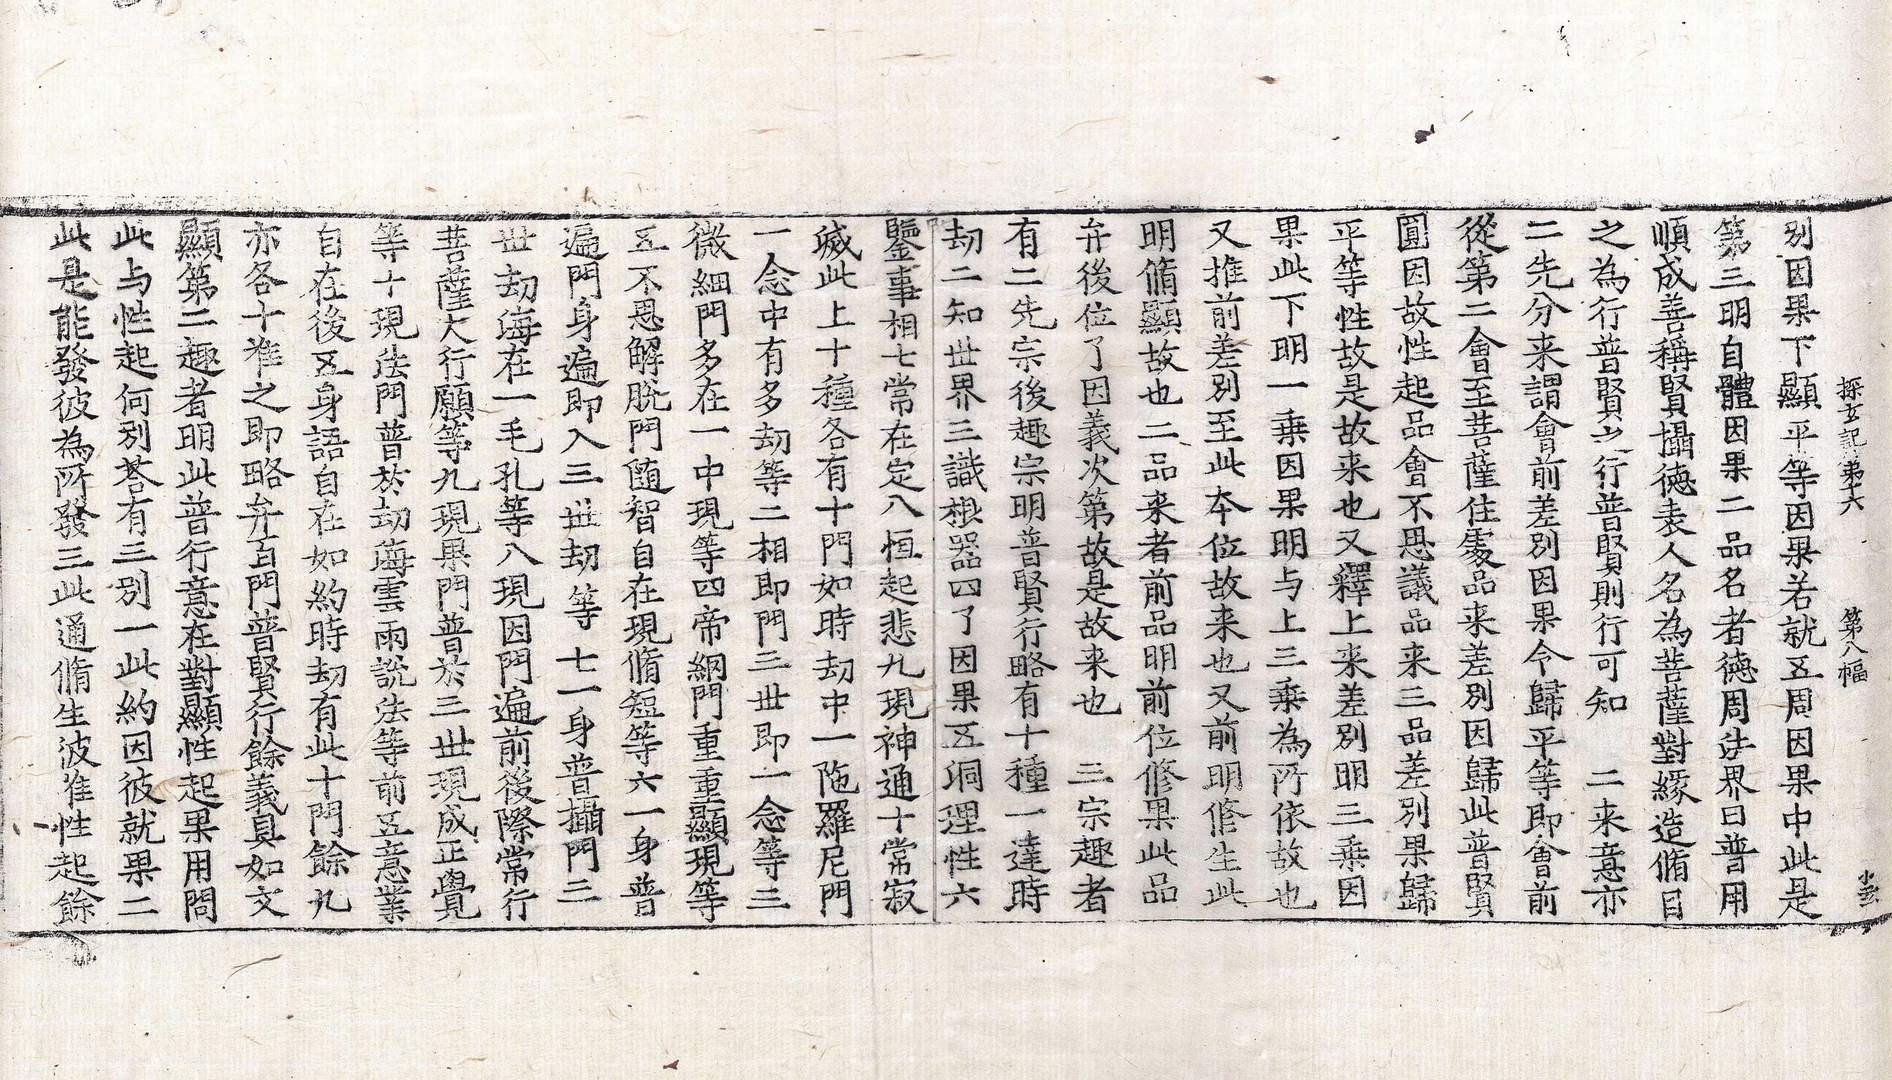 探玄記 第十六 第八幅
別因果下顯平等因果若就五周因果中此是
第三明自體因果二品名者德周法界曰普用
順成善稱賢攝德表人名為菩薩對緣造脩目
之為行普賢之行普賢則行可知 二来意亦
二先分来謂會前差別因果令歸平等即會前
從第二會至菩薩住處品来差別因歸此普賢
圓因故性起品會不思議品来三品差別果歸
平等性故是故来也又釋上来差別明三乗因
果此下明一乗因果明与上三乗為所依故也
又推前差別至此本位故来也又前明修生此
明脩顯故也二品来者前品明前位修果此品
弁後位了因義次第故是故来也 三宗趣者
有二先宗後趣宗明普賢行略有十種一達時
劫二知世界三識根器四了因果五洞理性六
鑒事相七常在定八恒起悲九現神通十常寂
滅此上十種各有十門如時劫中一陁羅尼門
一念中有多劫等二相即門三世即一念等三
微細門多在一中現等四帝網門重重顯現等
五不思解脫門随智自在現脩短等六一身普
遍門身遍即入三世劫等七一身普攝門三
世劫海在一毛孔等八現因門遍前後際常行
菩薩大行願等九現果門普於三世現成正覺
等十現法門普於劫海雲雨說法等前五意業
自在後五身語自在如約時劫有此十門餘九
亦各十准之即略弁百門普賢行餘義具如文
顯第二趣者明此普行意在對顯性起果用問
此与性起何別荅有三別一此約因彼就果二
此是能發彼為所發三此通脩生波准性起餘